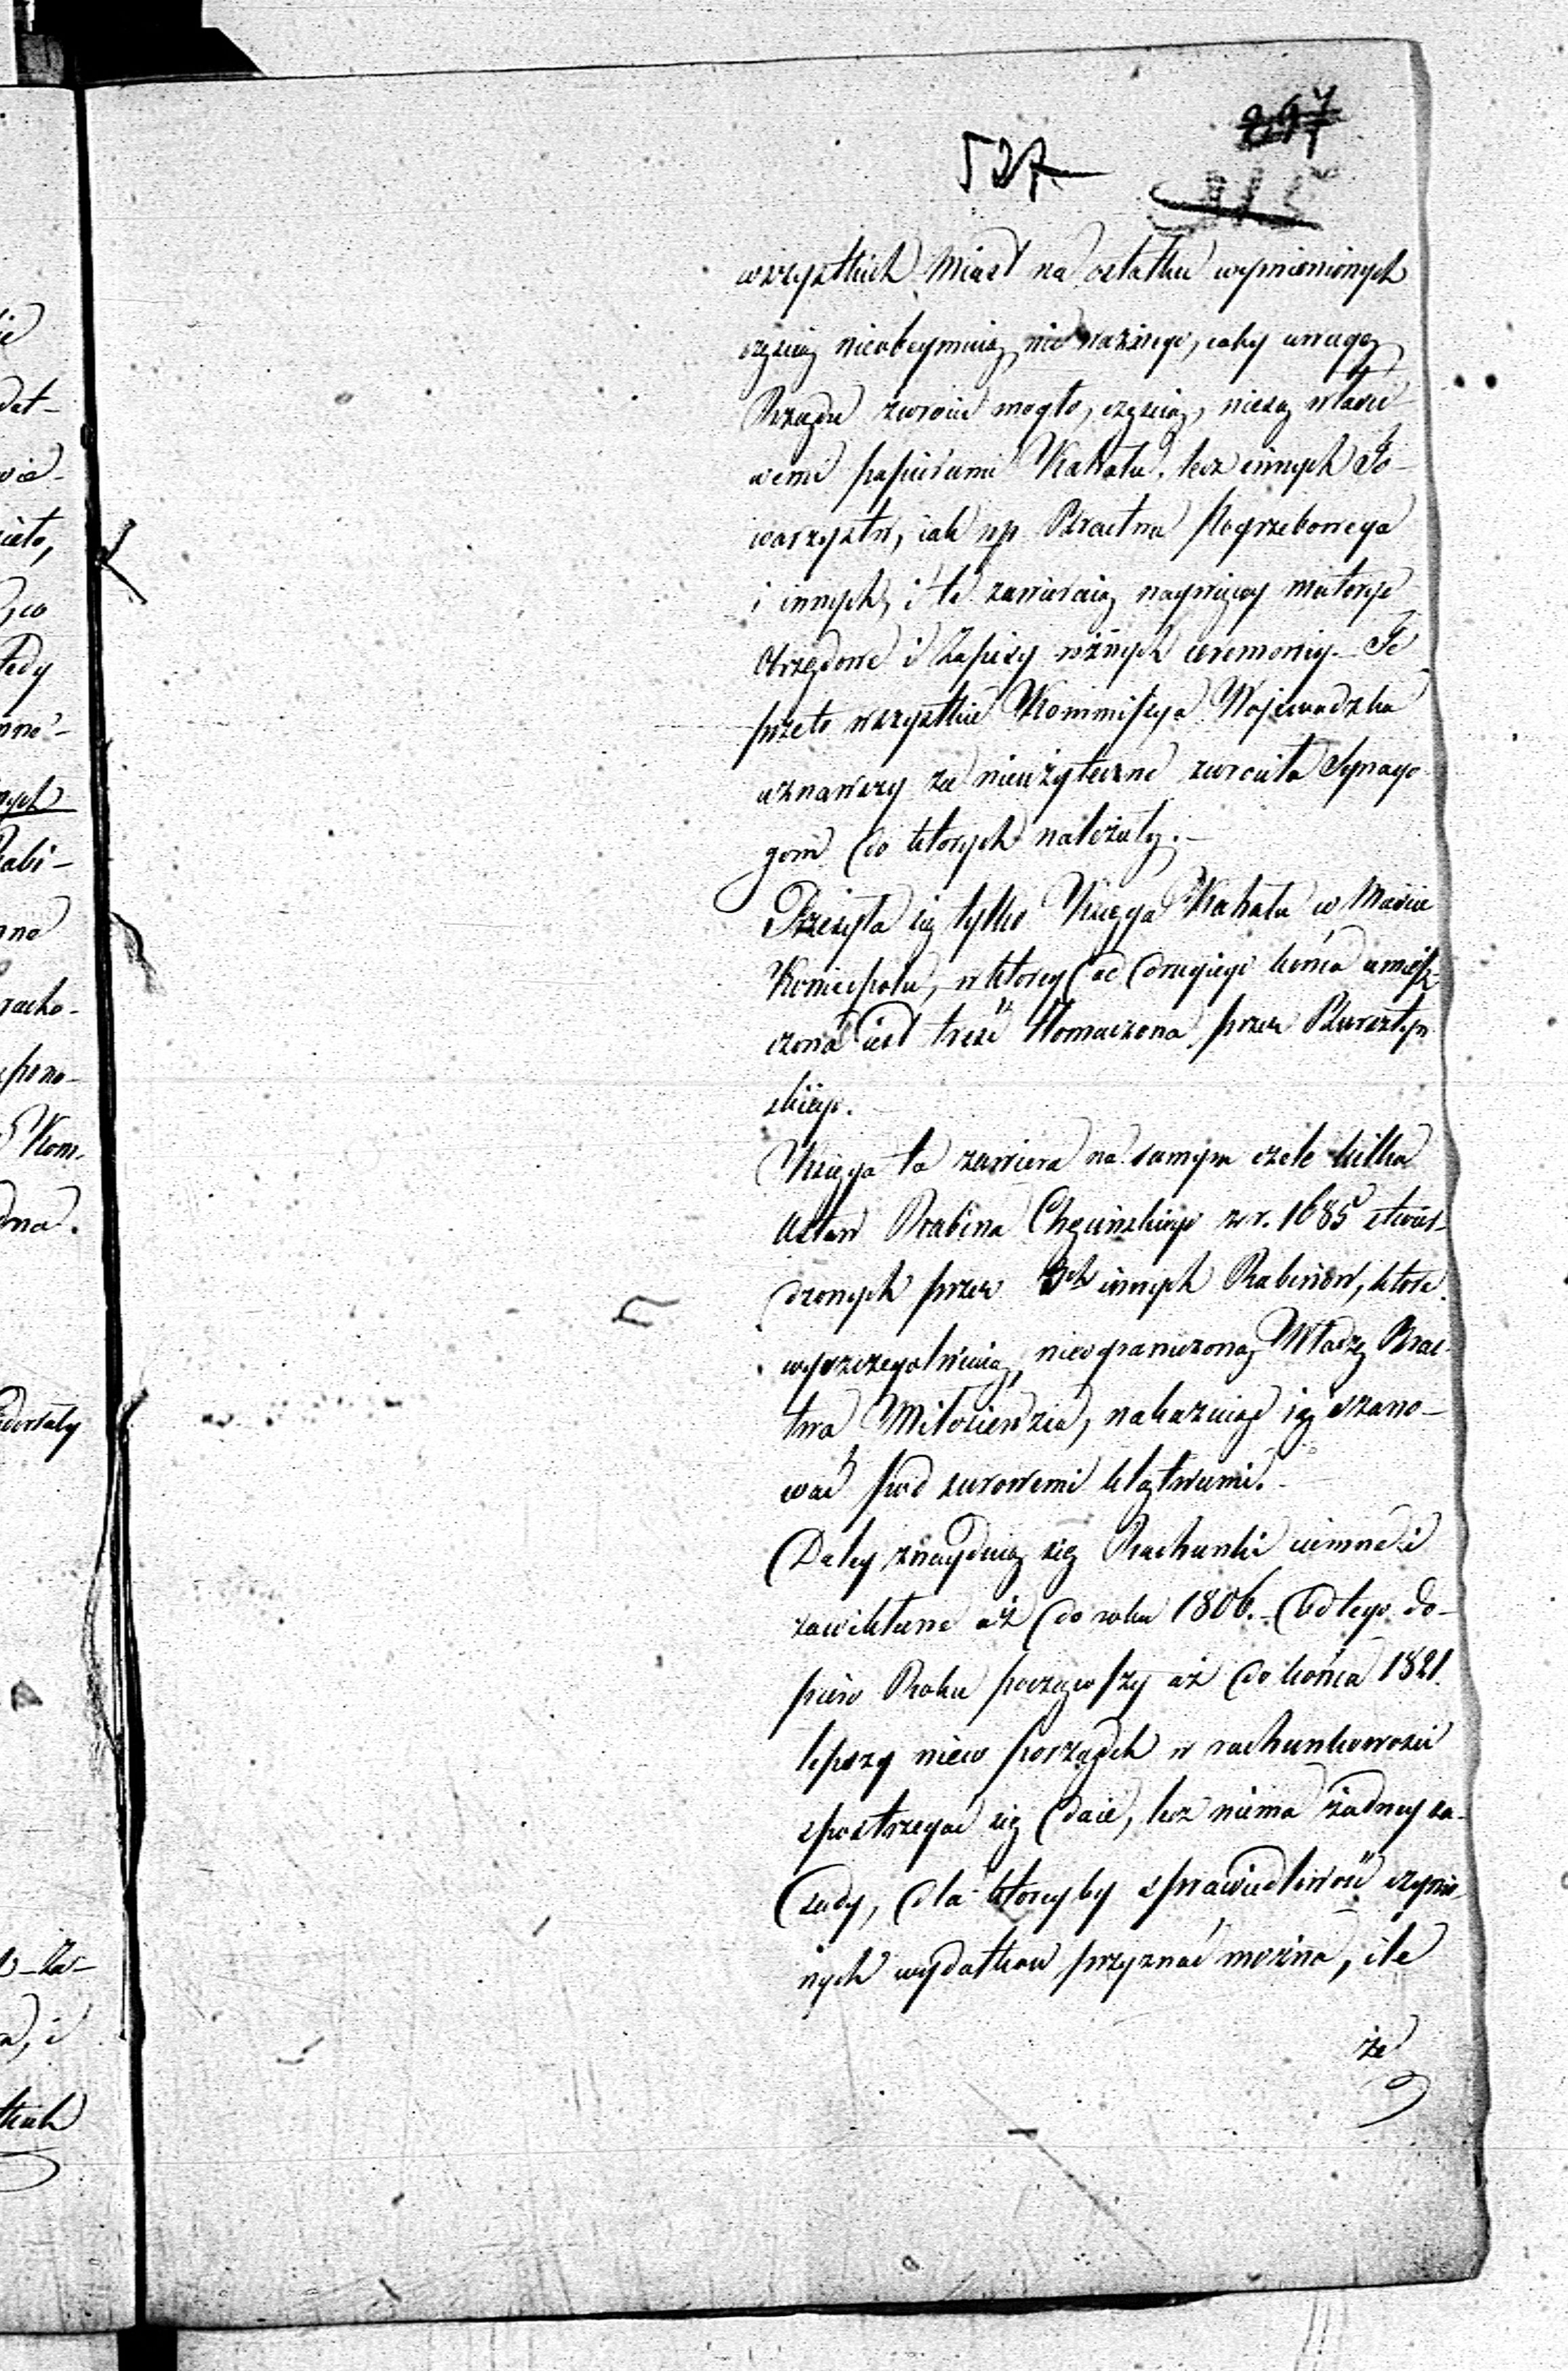 297
527
315
wszystkich Miast na ostatku wymienionych
częścią nieobeymuią nic ważnego, coby uwagę
Rządu zwrócić mogło, częścią, niesą właści
wemi papierami Kahału, lecz innych To-
warzystw, iak np Bractwa Pogrzebowego
i innych, i te zawieraią naywięcey materye
Obrzędowe i Zapisy różnych ceremoniy. Te
przeto wszystkie Kommissya Wojewodzka
uznawszy za nieużyteczne zwróciła Synago
gom do których należały.-
Przesyła się tylko Księga Kahału w Mieście
Koniecpolu, w którey od drugiego końca umiesz
czona iest treść tłomaczona przez Bursztyn
skiego.
Księga ta zawiera na samym czele kilka
Ustaw Rabina Chęcińskiego z r. 1685 stwier-
dzonych przez 3ch innych Rabinów, które
wyszczególniaią nieograniczoną Władzę Brac-
twa Miłosierdzia, nakazuiąc ią szano-
wać pod surowemi klątwami.-
Daley znayduią się Rachunki ciemne i
zawikłane aż do roku 1806.- Od tego do-
piero Roku począwszy aż do końca 1821.
lepszy nieco porządek w rachunkowości
spostrzegać się daie, lecz niema żadney za-
sady, dla którey by sprawiedliwość czynio-
nych wydatków przyznać można, ile
że